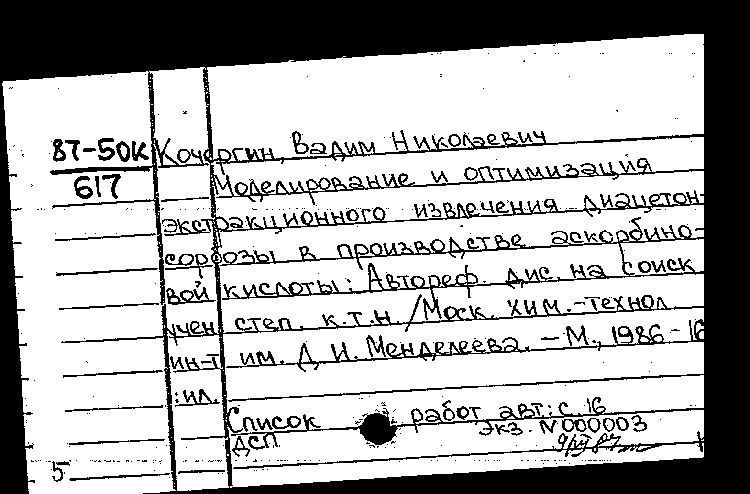 87-50К Кочергин, Вадим Николаевич
617 Моделирование и оптимизация
экстракционного извлечения диацетон-
сорбозы в производстве аскорбино-
вой кислоты: Автореф. дис. на соиск
учен степ. к.т.н. /Моск. хим.-технол
ин-т им. Д. И. Менделеева. – М., 1986 - 16
: ил.
Список работ авт: с. 16
ДСП экз. N 000003
5